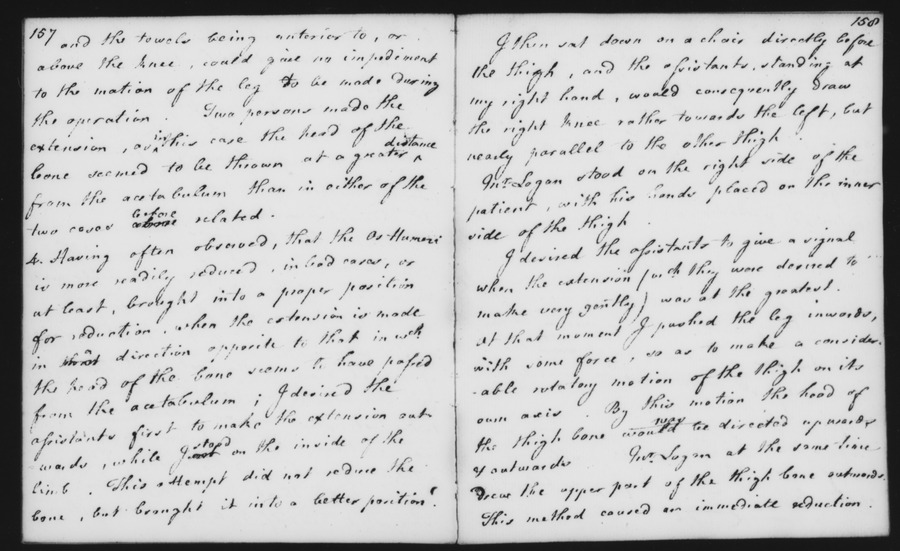 157
and the towels being anterior to, or
above the knee, could give no impediment
to the motion of the leg to be made during
the operation. Two persons made the
extension, as in this case the head of the
bone seemed to be thrown at a greater distance
from the acetabulum than in either of the
two cases before related.
4. Having often observed, that the Os Humeri
is more readily reduced, in bad cases, or
at least, brought into a proper position
for reduction, when the extension is made
in a direction opposite to that in wch
the head of the bone seems to have passed
from the acetabulum; I desired the
assistants first to make the extension out-
wards, while I stood on the inside of the
limb. This attempt did not reduce the
bone, but brought it into a better position.
158
I then sat down on a chair directly before
the thigh, and the assistants, standing at
my right hand, would consequently draw
the right knee rather towards the left, but
nearly parallel to the other thigh.
Mr. Logan stood on the right side of the
patient, with his hands placed on the inner
side of the thigh.
I desired the assistants to give a signal
when the extension (wch they were desired to
make very gently) was at the greatest.
At that moment I pushed the leg inwards,
with some force, so as to make a consider-
-able rotatory motion of the thigh on its
own axis. By this motion the head of
the thigh bone was directed upwards
& outwards Mr. Logan at the same time
drew the upper part of the thigh bone outwards.
This method caused an immediate reduction.